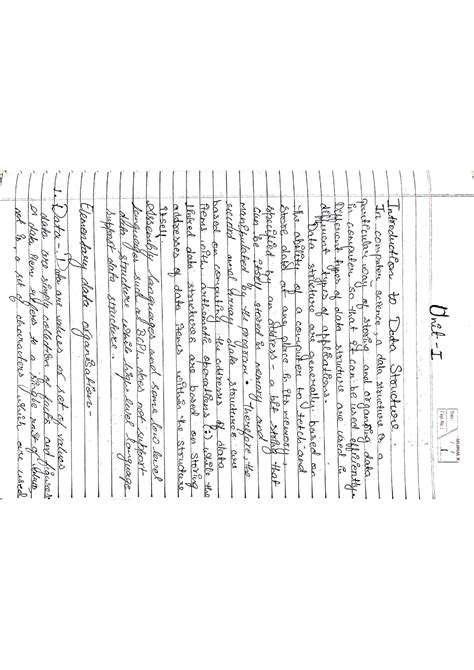 Unit-I
Introduction to Data Structure.
In computer science, a data structure is a
particular way of storing and organizing data
in computer so that it can be used efficiently.
Different types of data structure are used in
different types of applications.
Data structure are generally based on
the ability of a computer to fetch and
store data at any place in its memory,
specified by an address - a bit string that
can be itself stored in memory and
manipulated by the program. Therefore, the
record and array data structure are
based on computing the addresses of data
items with arithmetic operations while the
linked data structures are based on storing
addresses of data items within the structure
itself
Assembly languages and some low level
languages such as BCPL does not support
data structure while high level language
support data structure.
Elementary data organisations:-
1. Data - Data are values or set of values
data are simply collection of facts and figures
or data item refers to a single unit of values
not in a set of characters which are used